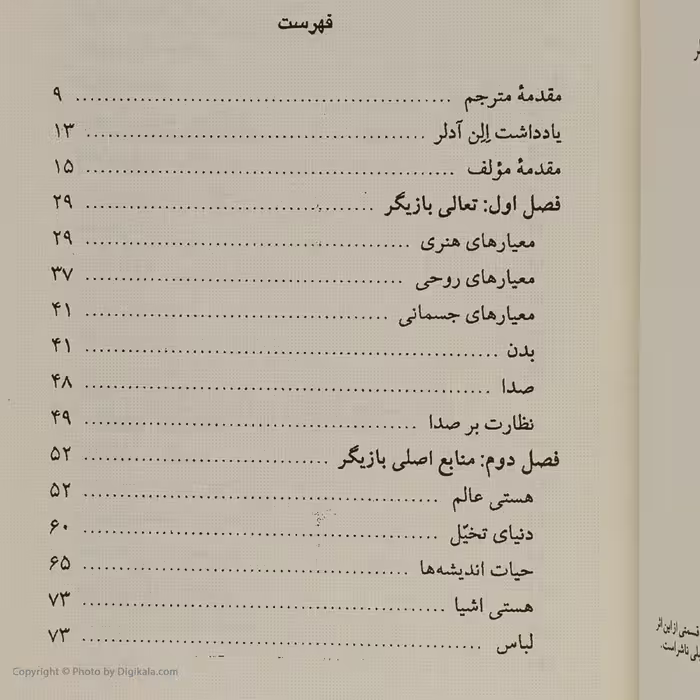 فهرست
مقدمهٔ مترجم ........ ۹
یادداشت اِلِن آدلر ........ ۱۳
مقدمهٔ مؤلف ........ ۱۵
فصل اول: تعالی بازیگر ........ ۲۹
معیارهای هنری ........ ۲۹
معیارهای روحی ........ ۳۷
معیارهای جسمانی ........ ۴۱
بدن ........ ۴۱
صدا ........ ۴۸
نظارت بر صدا ........ ۴۹
فصل دوم: منابع اصلی بازیگر ........ ۵۲
هستی عالم ........ ۵۲
دنیای تخیّل ........ ۶۰
حیات اندیشه‌ها ........ ۶۵
هستی اشیا ........ ۷۳
لباس ........ ۷۳
قسمتی از این اثر
ناشر است.
Copyright © Photo by Digikala.com